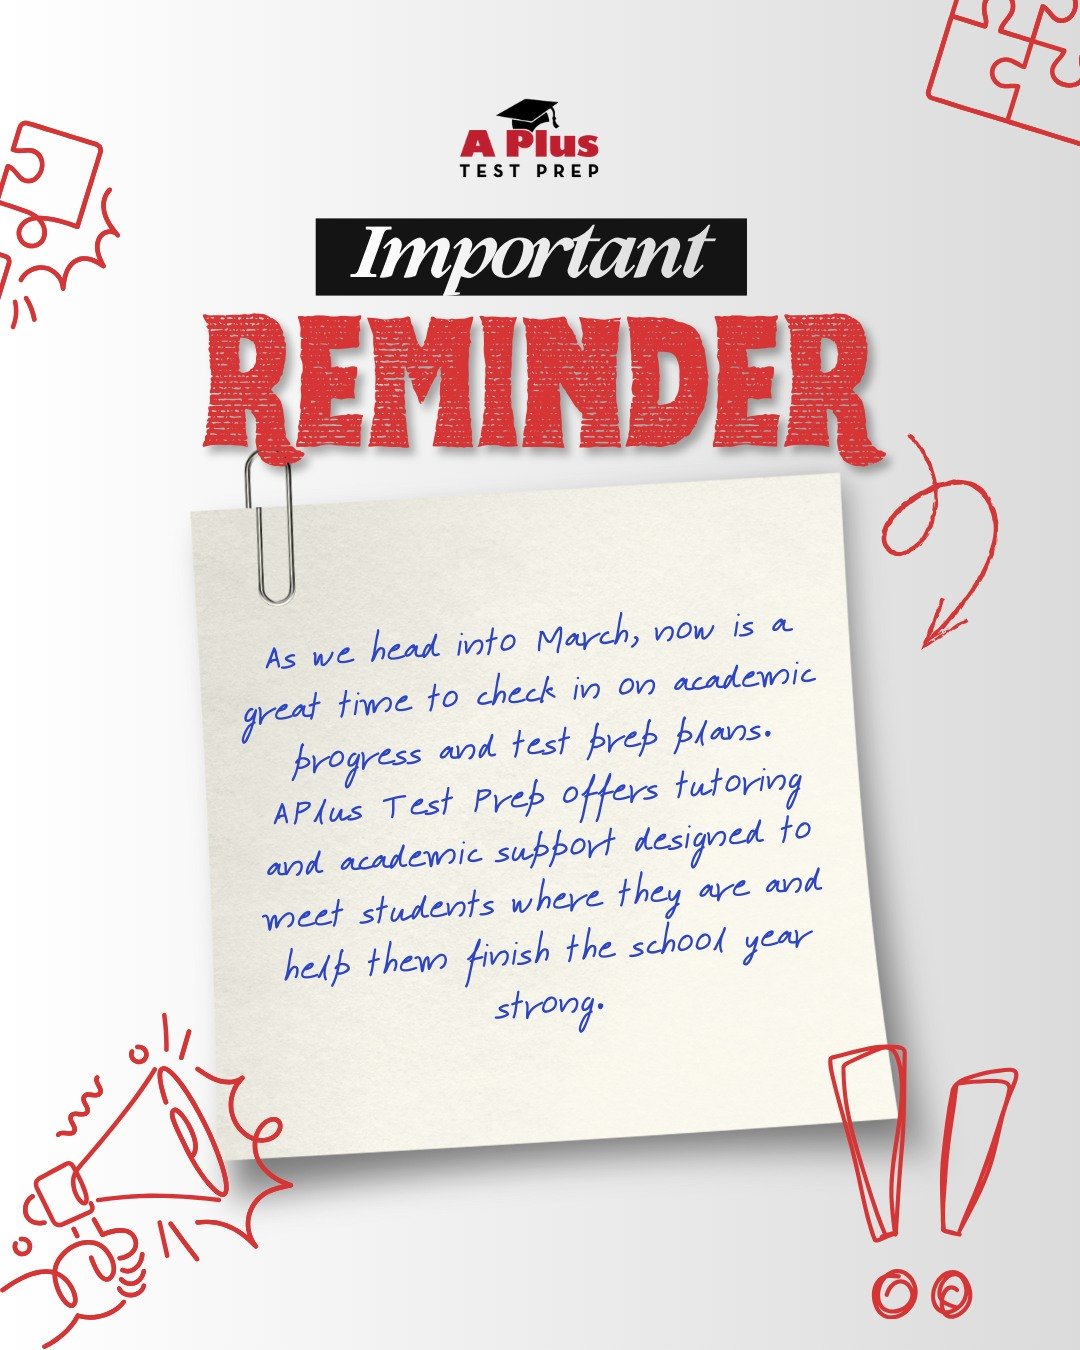 A Plus
TEST PREP
Important
REMINDER
As we head into March, now is a
great time to check in on academic
progress and test prep plans.
APlus Test Prep offers tutoring
and academic support designed to
meet students where they are and
help them finish the school year
strong.